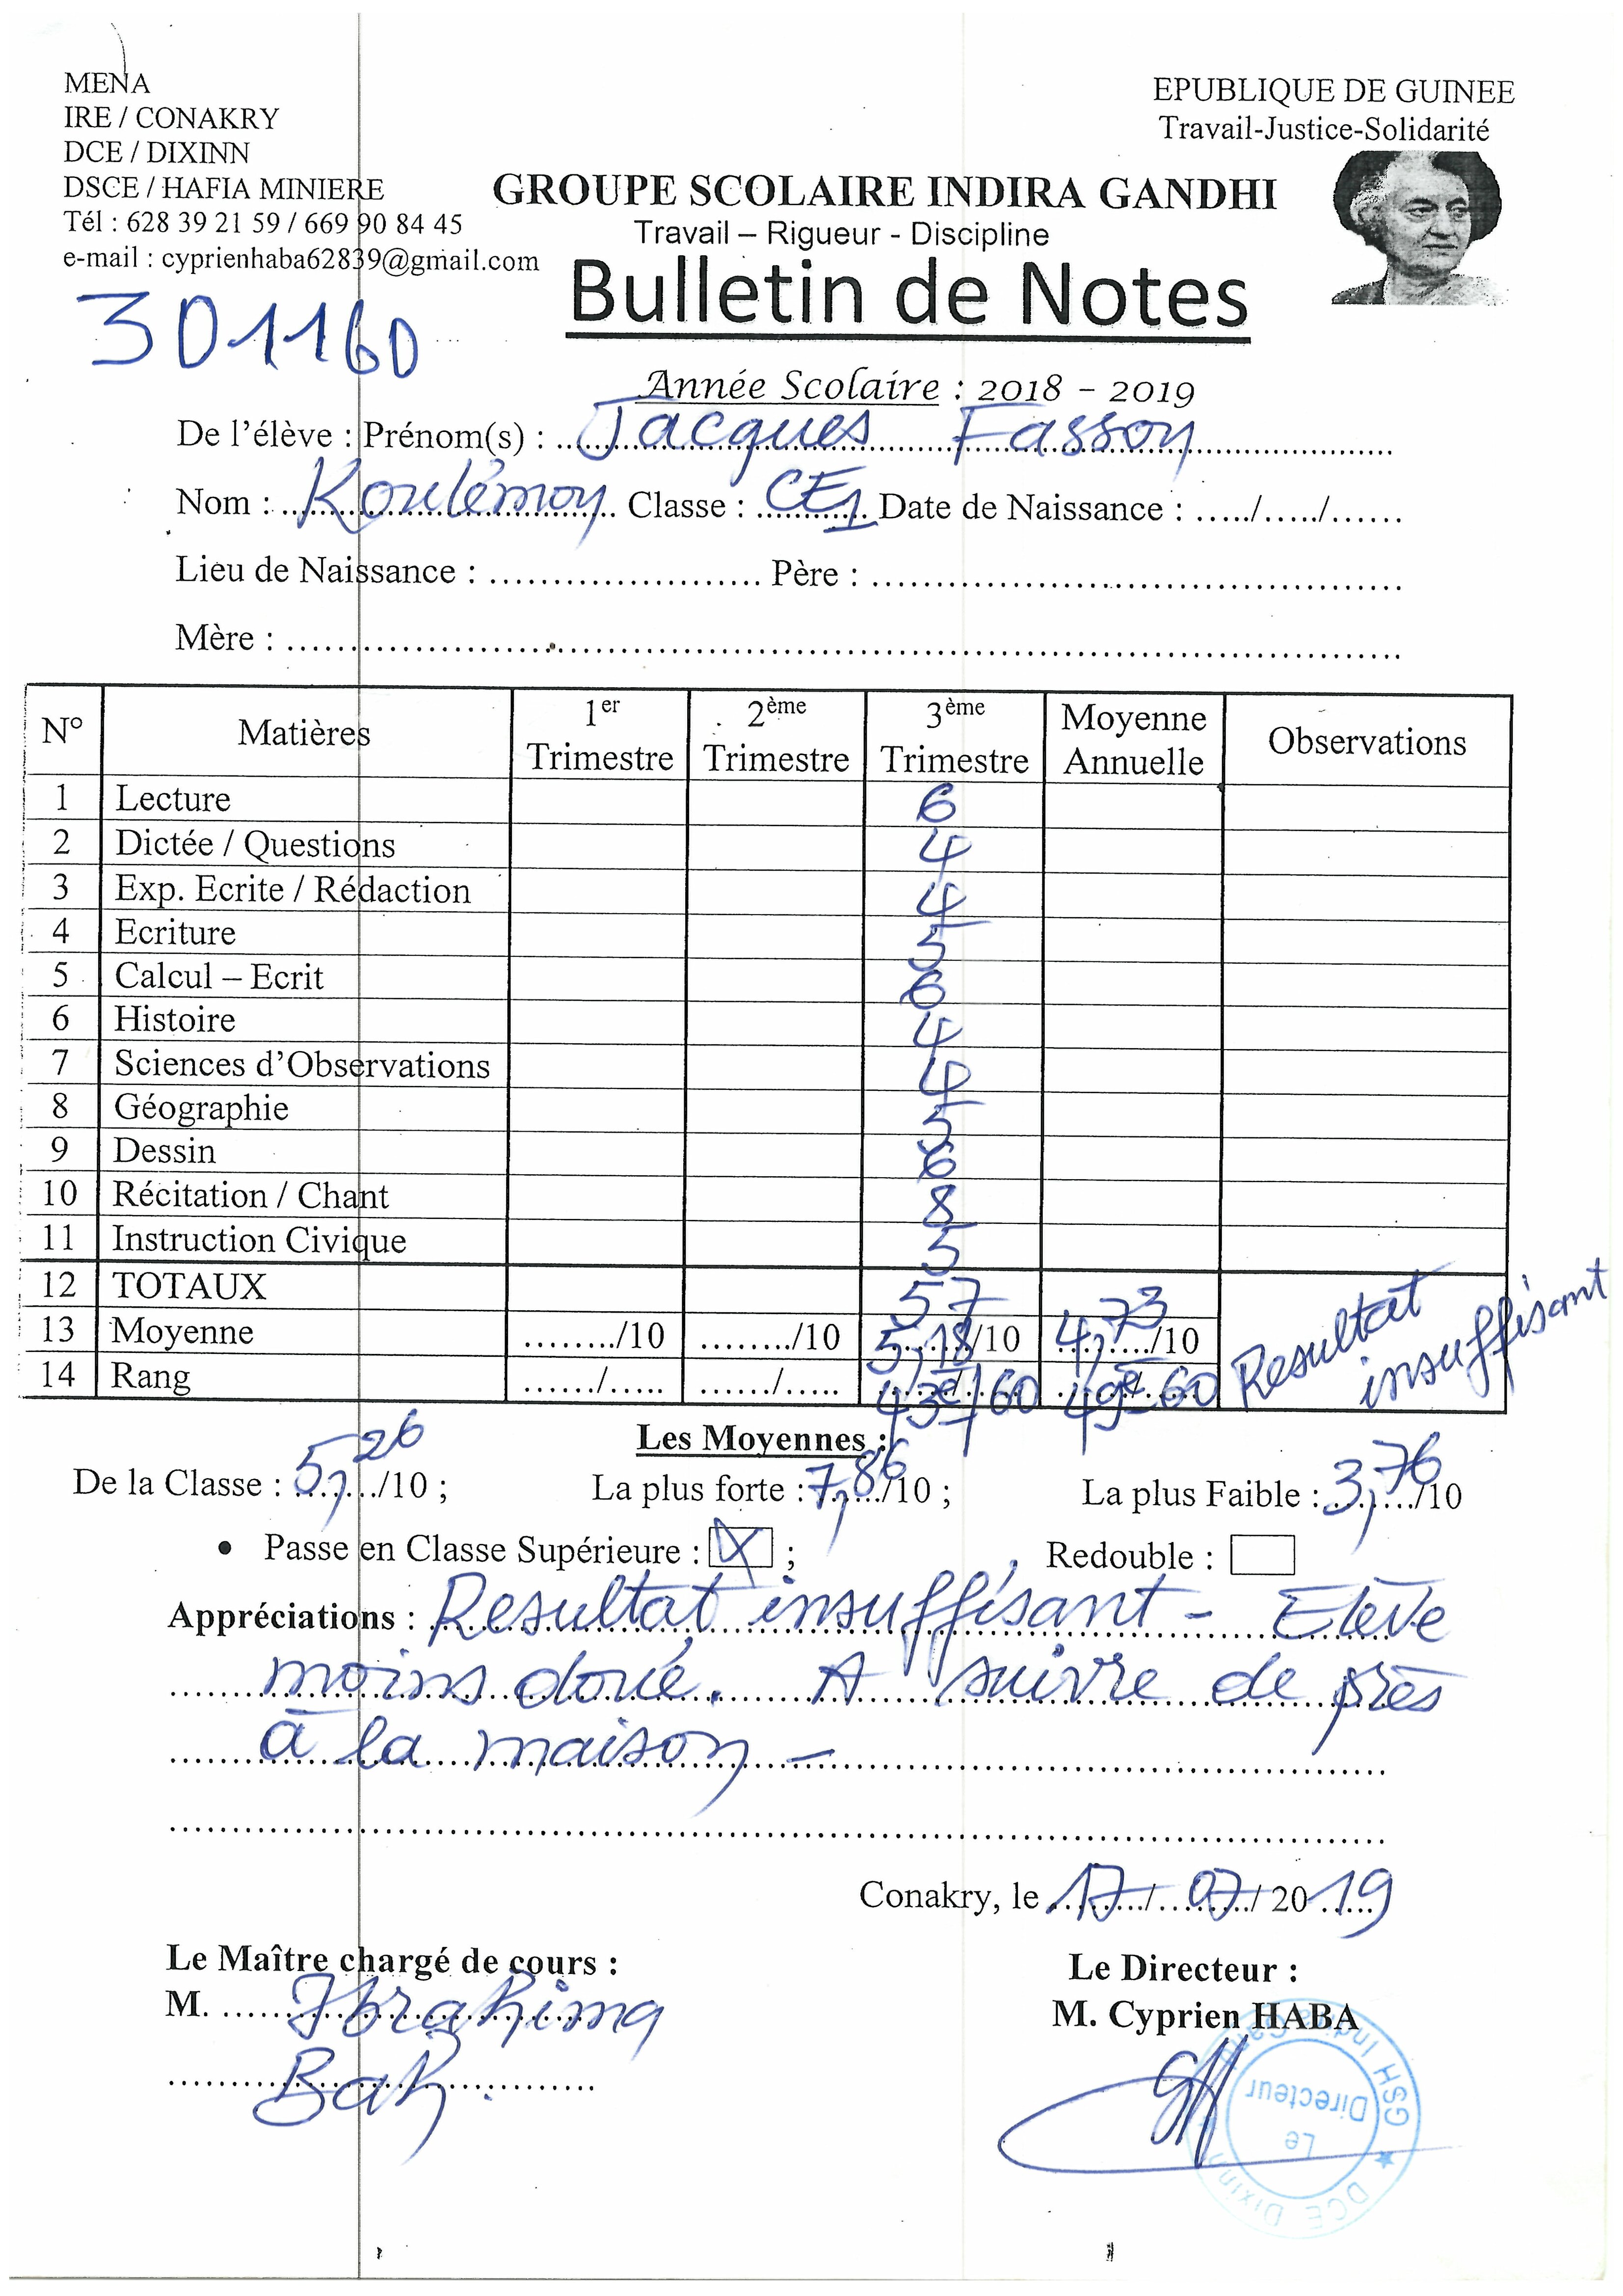 MENA
IRE / CONAKRY
DCE / DIXINN
DSCE / HAFIA MINIERE
Tél : 628 39 21 59 / 669 90 84 45
e-mail : cyprienhaba62839@gmail.com
EPUBLIQUE DE GUINEE
Travail-Justice-Solidarité
GROUPE SCOLAIRE INDIRA GANDHI
Travail – Rigueur - Discipline
Bulletin de Notes
301160
Année Scolaire : 2018 - 2019
De l'élève : Prénom(s) : Jacques Fasson
Nom : Koulémoy Classe : CE1 Date de Naissance : ...../...../......
Lieu de Naissance : ..................... Père : .........................................
Mère : .........................................
N° Matières 1er Trimestre 2ème Trimestre 3ème Trimestre Moyenne Annuelle Observations
1 Lecture 6
2 Dictée / Questions 4
3 Exp. Ecrite / Rédaction 4
4 Ecriture 5
5 Calcul – Ecrit 6
6 Histoire 4
7 Sciences d'Observations 4
8 Géographie 5
9 Dessin 6
10 Récitation / Chant 8
11 Instruction Civique 5
12 TOTAUX 57
13 Moyenne ......../10 ......../10 5,18/10 4,73/10 Resultat insuffisant
14 Rang ....../..... ....../..... 43e/60 49e 60
Les Moyennes :
De la Classe : 5,26/10 ; La plus forte : 7,86/10 ; La plus Faible : 3,76/10
• Passe en Classe Supérieure : X ; Redouble :
Appréciations : Resultat insuffisant - Elève
moins doué. A suivre de près
à la maison -
Conakry, le 17/07/2019
Le Maître chargé de cours :
M. Ibrahima
Bah.
Le Directeur :
M. Cyprien HABA
GSH Indira Gan
Le
Directeur
★ DCE Dixinn